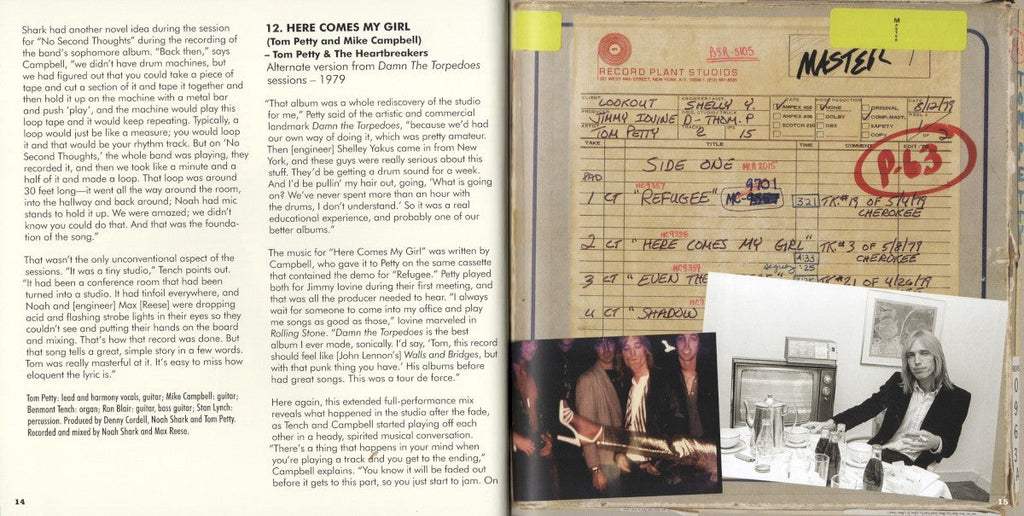 Shark had another novel idea during the session
for “No Second Thoughts” during the recording of
the band’s sophomore album. “Back then,” says
Campbell, “we didn’t have drum machines, but
we had figured out that you could take a piece of
tape and cut a section of it and tape it together and
then hold it up on the machine with a metal bar
and push ‘play’, and the machine would play this
loop tape and it would keep repeating. Typically, a
loop would just be like a measure; you would loop
it and that would be your rhythm track. But on ‘No
Second Thoughts,’ the whole band was playing, they
recorded it, and then we took like a minute and a
half of it and made a loop. That loop was around
30 feet long—it went all the way around the room,
into the hallway and back around; Noah had mic
stands to hold it up. We were amazed; we didn’t
know you could do that. And that was the founda-
tion of the song.”
That wasn’t the only unconventional aspect of the
sessions. “It was a tiny studio,” Tench points out.
“It had been a conference room that had been
turned into a studio. It had tinfoil everywhere, and
Noah and [engineer] Max [Reese] were dropping
acid and flashing strobe lights in their eyes so they
couldn’t see and putting their hands on the board
and mixing. That’s how that record was done. But
that song tells a great, simple story in a few words.
Tom was really masterful at it. It’s easy to miss how
eloquent the lyric is.”
Tom Petty: lead and harmony vocals, guitar; Mike Campbell: guitar;
Benmont Tench: organ; Ron Blair: guitar, bass guitar; Stan Lynch:
percussion. Produced by Denny Cordell, Noah Shark and Tom Petty.
Recorded and mixed by Noah Shark and Max Reese.
14
12. HERE COMES MY GIRL
(Tom Petty and Mike Campbell)
– Tom Petty & The Heartbreakers
Alternate version from Damn The Torpedoes
sessions – 1979
“That album was a whole rediscovery of the studio
for me,” Petty said of the artistic and commercial
landmark Damn the Torpedoes, “because we’d had
our own way of doing it, which was pretty amateur.
Then [engineer] Shelley Yakus came in from New
York, and these guys were really serious about this
stuff. They’d be getting a drum sound for a week.
And I’d be pullin’ my hair out, going, ‘What is going
on? We’ve never spent more than an hour with
the drums, I don’t understand.’ So it was a real
educational experience, and probably one of our
better albums.”
The music for “Here Comes My Girl” was written by
Campbell, who gave it to Petty on the same cassette
that contained the demo for “Refugee.” Petty played
both for Jimmy Iovine during their first meeting, and
that was all the producer needed to hear. “I always
wait for someone to come into my office and play
me songs as good as those,” Iovine marveled in
Rolling Stone. “Damn the Torpedoes is the best
album I ever made, sonically. I’d say, ‘Tom, this record
should feel like [John Lennon’s] Walls and Bridges, but
with that punk thing you have.’ His albums before
had great songs. This was a tour de force.”
Here again, this extended full-performance mix
reveals what happened in the studio after the fade,
as Tench and Campbell started playing off each
other in a heady, spirited musical conversation.
“There’s a thing that happens in your mind when
you’re playing a track and you get to the ending,”
Campbell explains. “You know it will be faded out
before it gets to this part, so you just start to jam. On
MASTER
BSR-5105
MASTER
RECORD PLANT STUDIOS
CLIENT LOOKOUT SHELLY Y. TAPE AMPEX 456 NOISE REDUCTION NONE ORIGINAL DATE 8/12/79
JIMMY IOVINE D-THOM. P AMPEX 406 DOLBY COMP. MAST.
ARTIST TOM PETTY 2 15 SCOTCH 250 DBX SAFETY COPY 1 OF 2
TAKE TITLE TIME COMMENT EDIT
P-63
SIDE ONE MCA 2015
PAD
MC9357 9701
1 CT "REFUGEE" MC-9357 3:21 TK.#19 OF 5/4/79
CHEROKEE
MC9358
2 CT "HERE COMES MY GIRL" TK.#3 OF 5/8/79
4:33 CHEROKEE
MC9359
3 CT "EVEN THE TK#21 OF 4/26/79
4 CT "SHADOW
15